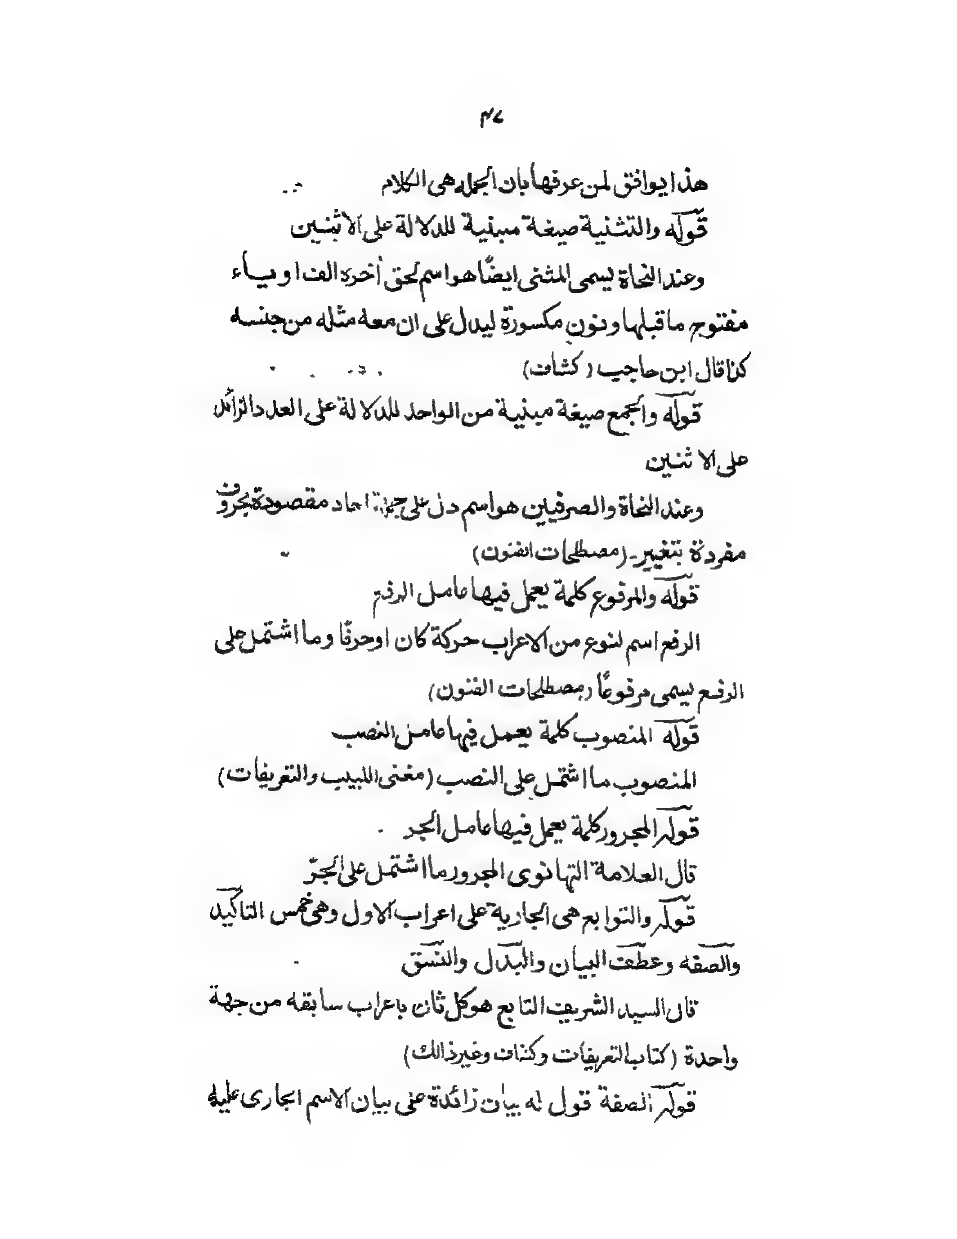 ۴۷
هذا يوافق لمن عرفها بان الجمله هى الكلام
قوله والتثنية صيغة مبنية للدلالة على الاثنين
وعند النحاة يسمى المثنى ايضًا هو اسم لحق أخره الف او ياء
مفتوح ما قبلها ونون مكسورة ليدل على ان معه مثله من جنسه
كذا قال ابن حاجب (كشاف)
قوله وأجمع صيغة مبنية من الواحد للدلالة على العدد الزائد
على الاثنين
وعند النحاة والصرفيين هو اسم دل على جملة احاد مقصودة بحروف
مفردة بتغيير۔ (مصطلحات الفنون)
قوله والمرفوع كلمة يعمل فيها عامل الرفع
الرفع اسم لنوع من الاعراب حركة كان او حرفًا وما اشتمل على
الرفع يسمى مرفوعاً (مصطلحات الفنون)
قوله المنصوب كلمة يعمل فيها عامل النصب
المنصوب ما اشتمل على النصب (مغنى اللبيب والتعريفات)
قوله المجرور كلمة يعمل فيها عامل الجر
قال العلامة التهانوى المجرور ما اشتمل على الجرّ
قوله والتوابع هى الجارية على اعراب الاول وهى خمس التاكيد
والصفه وعطف البيان والبدل والنسق
قال السيد الشريف التابع هو كل ثان باعراب سابقه من جهة
واحدة (كتاب التعريفات وكشاف وغير ذالك)
قوله الصفة قول له بيان زائدة على بيان الاسم الجارى عليه